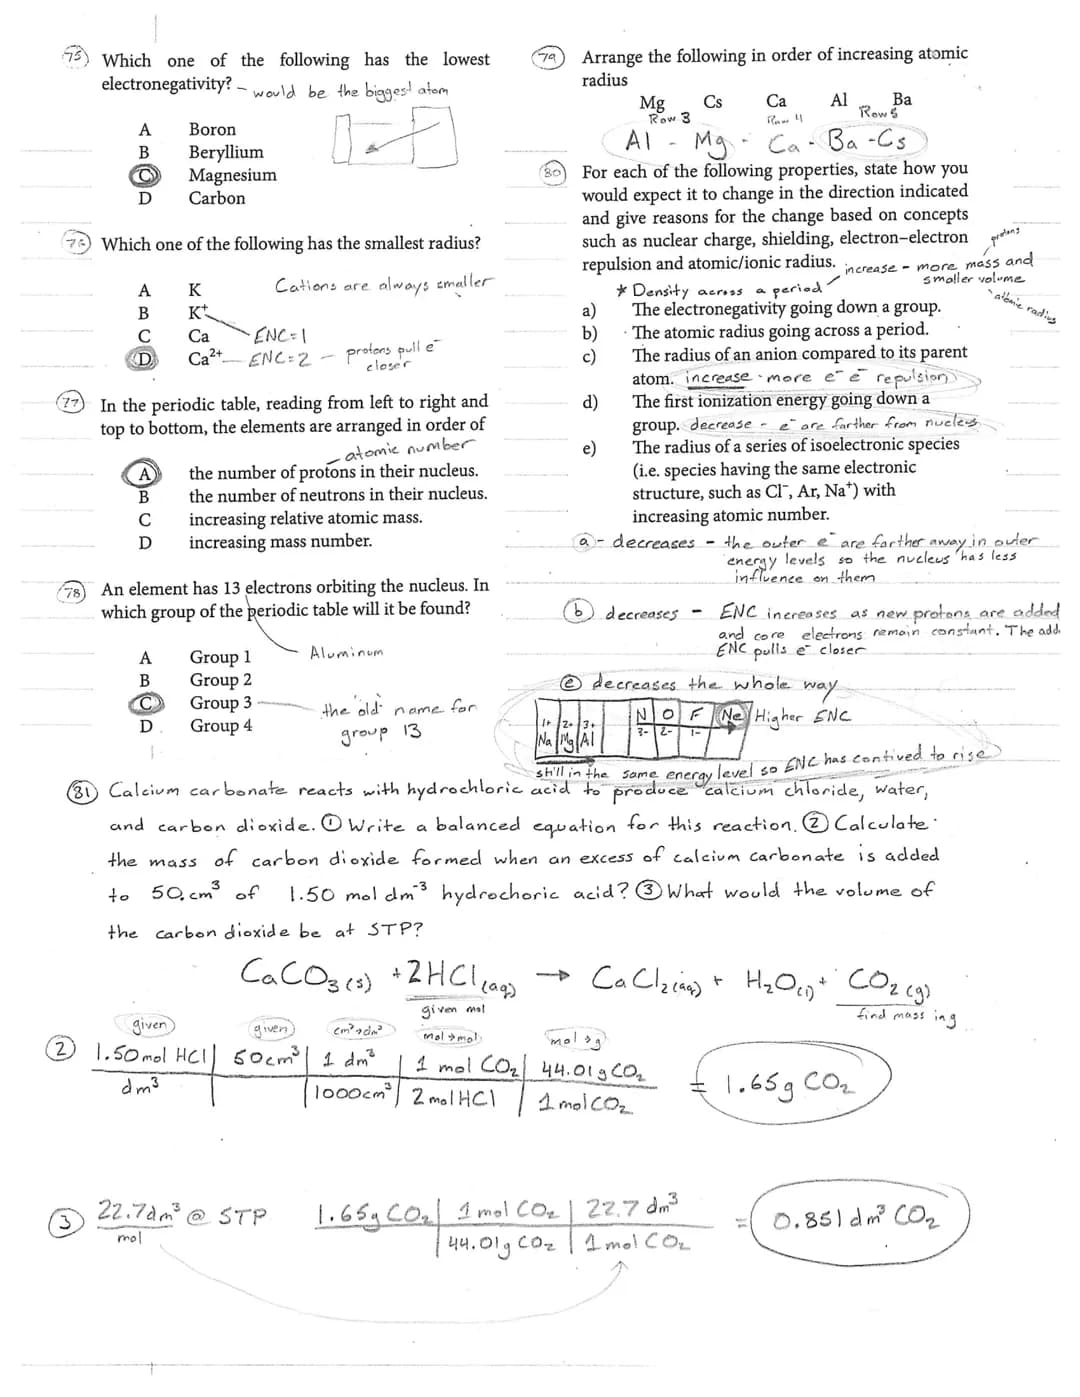 75 Which one of the following has the lowest
electronegativity? - would be the biggest atom
A Boron
B Beryllium
C Magnesium
D Carbon
76 Which one of the following has the smallest radius?
Cations are always smaller
A K
B K⁺
C Ca ENC=1
D Ca²⁺ ENC=2 - protons pull e⁻
closer
77 In the periodic table, reading from left to right and
top to bottom, the elements are arranged in order of
- atomic number
A the number of protons in their nucleus.
B the number of neutrons in their nucleus.
C increasing relative atomic mass.
D increasing mass number.
78 An element has 13 electrons orbiting the nucleus. In
which group of the periodic table will it be found?
A Group 1 Aluminum
B Group 2
C Group 3 the 'old' name for
D Group 4 group 13
79 Arrange the following in order of increasing atomic
radius
Mg Cs Ca Al Ba
Row 3 Row 4 Row 5
Al - Mg - Ca - Ba - Cs
80 For each of the following properties, state how you
would expect it to change in the direction indicated
and give reasons for the change based on concepts
such as nuclear charge, shielding, electron–electron protons
repulsion and atomic/ionic radius. increase - more mass and
smaller volume
* Density across a period atomic radius
a) The electronegativity going down a group.
b) The atomic radius going across a period.
c) The radius of an anion compared to its parent
atom. increase - more e⁻ e⁻ repulsion
d) The first ionization energy going down a
group. decrease - e⁻ are farther from nucleus
e) The radius of a series of isoelectronic species
(i.e. species having the same electronic
structure, such as Cl⁻, Ar, Na⁺) with
increasing atomic number.
a - decreases - the outer e⁻ are farther away in outer
energy levels so the nucleus has less
influence on them
b decreases - ENC increases as new protons are added
and core electrons remain constant. The add
ENC pulls e⁻ closer
e decreases the whole way
1+ 2+ 3+ N O F Ne Higher ENC
Na Mg Al 3- 2- 1-
still in the same energy level so ENC has contived to rise
81 Calcium carbonate reacts with hydrochloric acid to produce calcium chloride, water,
and carbon dioxide. ① Write a balanced equation for this reaction. ② Calculate
the mass of carbon dioxide formed when an excess of calcium carbonate is added
to 50.cm³ of 1.50 mol dm⁻³ hydrochoric acid? ③ What would the volume of
the carbon dioxide be at STP?
CaCO₃(s) + 2HCl(aq) → CaCl₂(aq) + H₂O(l) + CO₂(g)
given mol find mass in g
given given cm³→dm³ mol→mol mol→g
② 1.50 mol HCl | 50cm³ | 1 dm³ | 1 mol CO₂ | 44.01g CO₂ = 1.65g CO₂
dm³ | | 1000cm³ | 2 mol HCl | 1 mol CO₂
③ 22.7dm³ @ STP 1.65g CO₂ | 1 mol CO₂ | 22.7 dm³ = 0.851 dm³ CO₂
mol | 44.01g CO₂ | 1 mol CO₂